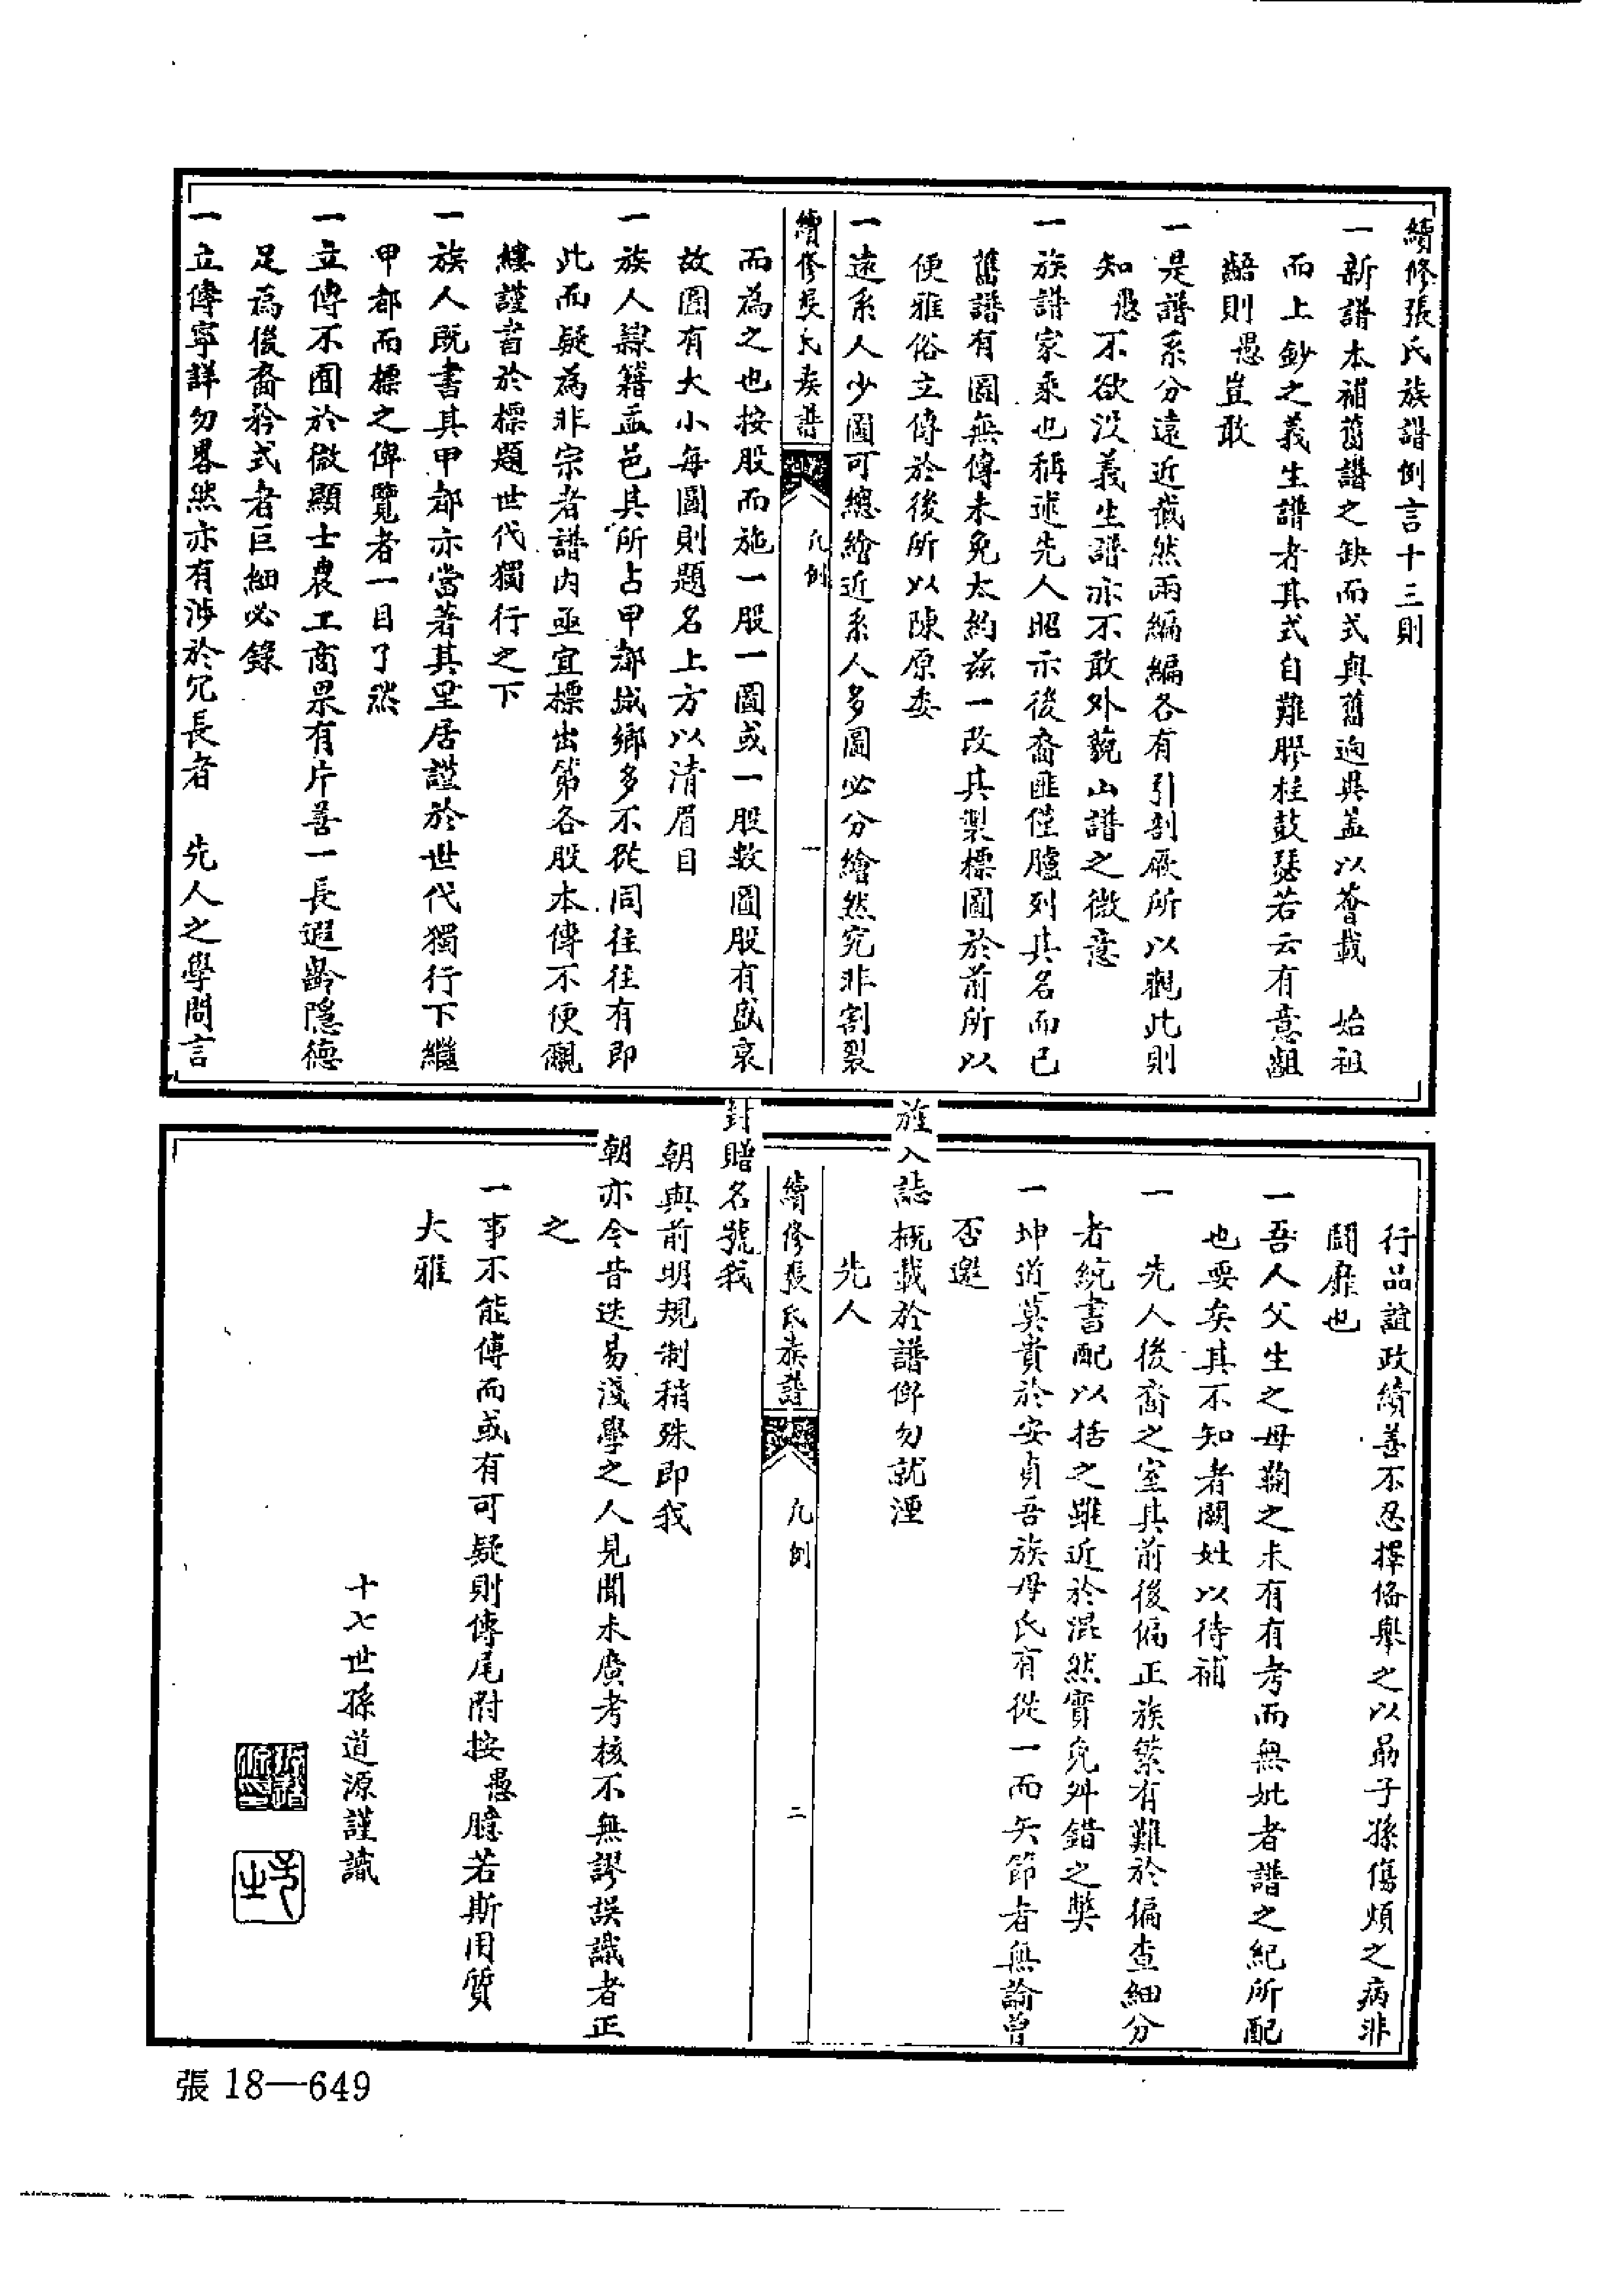 續修張氏族譜例言十三則
一新譜本補舊譜之缺而式與舊逈異蓋以薈載　始祖
而上鈔之義生譜者其式自難膠柱鼓瑟若云有意齟
齬則愚豈敢
一是譜系分遠近截然兩編編各有引剖厥所以觀此則
知愚不欲没義生譜亦不敢外藐山譜之微意
一族譜家乘也稱述先人昭示後裔匪僅臚列其名而已
舊譜有圖無傳未免太約茲一改其製標圖於前所以
便雅俗立傳於後所以陳原委
一遠系人少圖可總繪近系人多圖必分繪然究非割裂
續修張氏族譜　凡例　一
而為之也按股而施一股一圖或一股數圖股有盛衰
故圖有大小每圖則題名上方以清眉目
一族人隸籍孟邑其所占甲都城鄉多不從同往往有即
此而疑為非宗者譜内亟宜標出第各股本傳不便覼
縷謹書於標題世代獨行之下
一族人既書其甲都亦當著其里居謹於世代獨行下繼
甲都而標之俾覽者一目了然
一立傳不囿於微顯士農工商果有片善一長遐齡隱德
足為後裔矜式者巨細必錄
一立傳寧詳勿畧然亦有涉於冗長者　先人之學問言
行品誼政績善不忍擇俻舉之以為子孫傷煩之病非
闘靡也
一吾人父生之母鞠之未有有考而無妣者譜之紀所配
也要矣其不知者闕姓以待補
一　先人後裔之室其前後偏正族繁有難於徧查細分
者統書配以括之雖近於混然實免舛錯之獘
一坤道莫貴於安貞吾族母氏有從一而矢節者無論曾
否邀
旌入誌概載於譜俾勿就湮
先人
續修張氏族譜　凡例　二
封贈名號我
朝與前明規制稍殊即我
朝亦今昔迭易淺學之人見聞未廣考核不無謬誤識者正
之
一事不能傳而或有可疑則傳尾附按愚臆若斯用質
大雅
十七世孫道源謹識
張 18—649